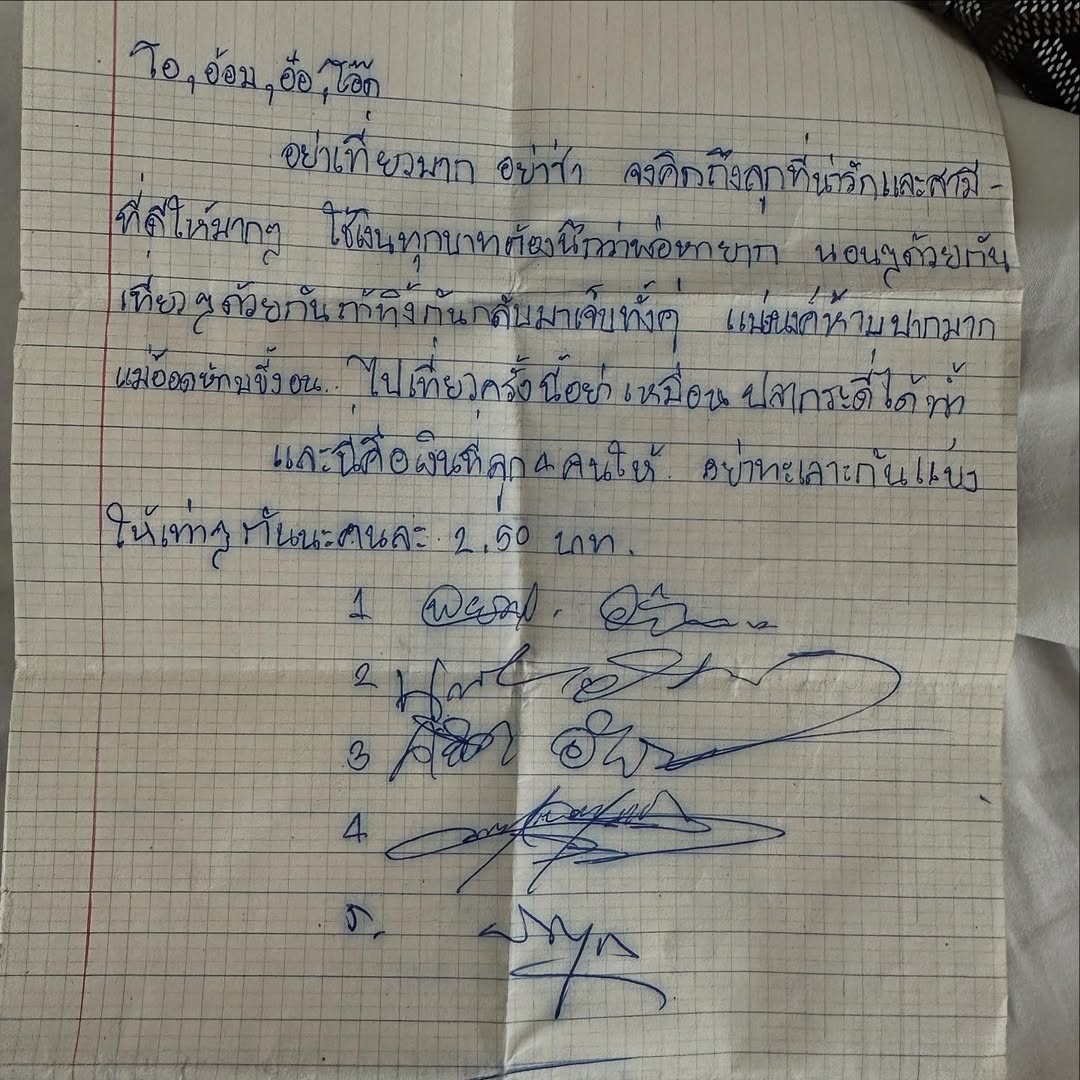 โอ, อ้อม, อ๋อ, โอ๊ต
อย่าเที่ยวมาก อย่าซ่า จงคิดถึงลูกที่น่ารักและสามี -
ที่ดีให้มากๆ ใช้เงินทุกบาทต้องนึกว่าพ่อหายาก นอนๆด้วยกัน
เที่ยวๆด้วยกันถ้าทิ้งกันกลับมาเจ็บทั้งคู่ ห้ามปากมาก
แม่อ๊อดห้ามขี้งอน.. ไปเที่ยวครั้งนี้อย่าเหมือนปลากระดี่ได้น้ำ
และนี่คือเงินที่ลูก 4 คนให้. อย่าทะเลาะกันแบ่ง
ให้เท่าๆกันนะคนละ 2.50 บาท.
1
2
3
4
5.